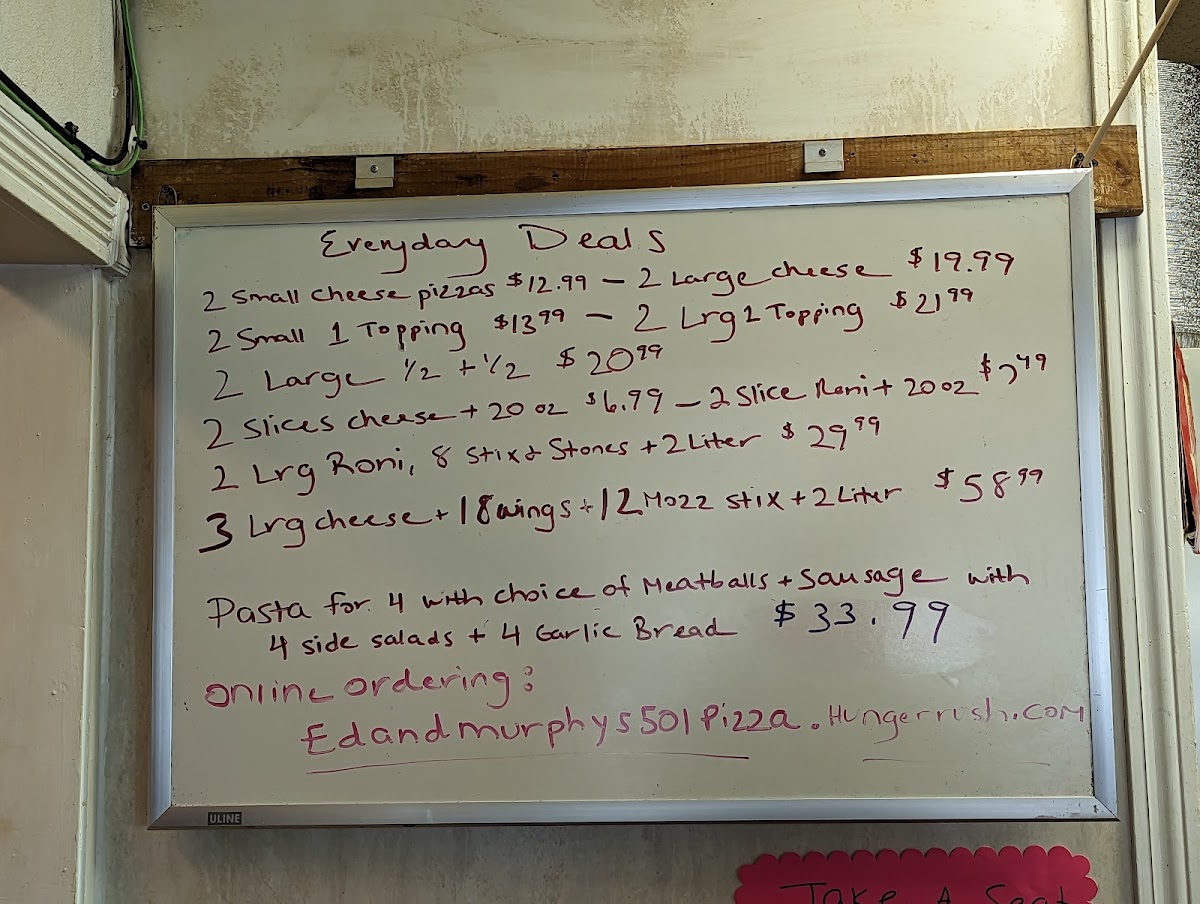 Everyday Deals
2 Small cheese pizzas $12.99 – 2 Large cheese $19.99
2 Small 1 Topping $13 99 – 2 Lrg 1 Topping $21 99
2 Large 1/2 + 1/2 $20 99
2 Slices cheese + 20 oz $6.99 – 2 Slice Roni + 20 oz $7 49
2 Lrg Roni, 8 Stix + Stones + 2 Liter $29 99
3 Lrg cheese + 18 wings + 12 Mozz stix + 2 Liter $58 99
Pasta for 4 with choice of Meatballs + Sausage with
4 side salads + 4 Garlic Bread $33.99
online ordering:
Edandmurphys501Pizza.Hungerrush.com
ULINE
Take A Seat